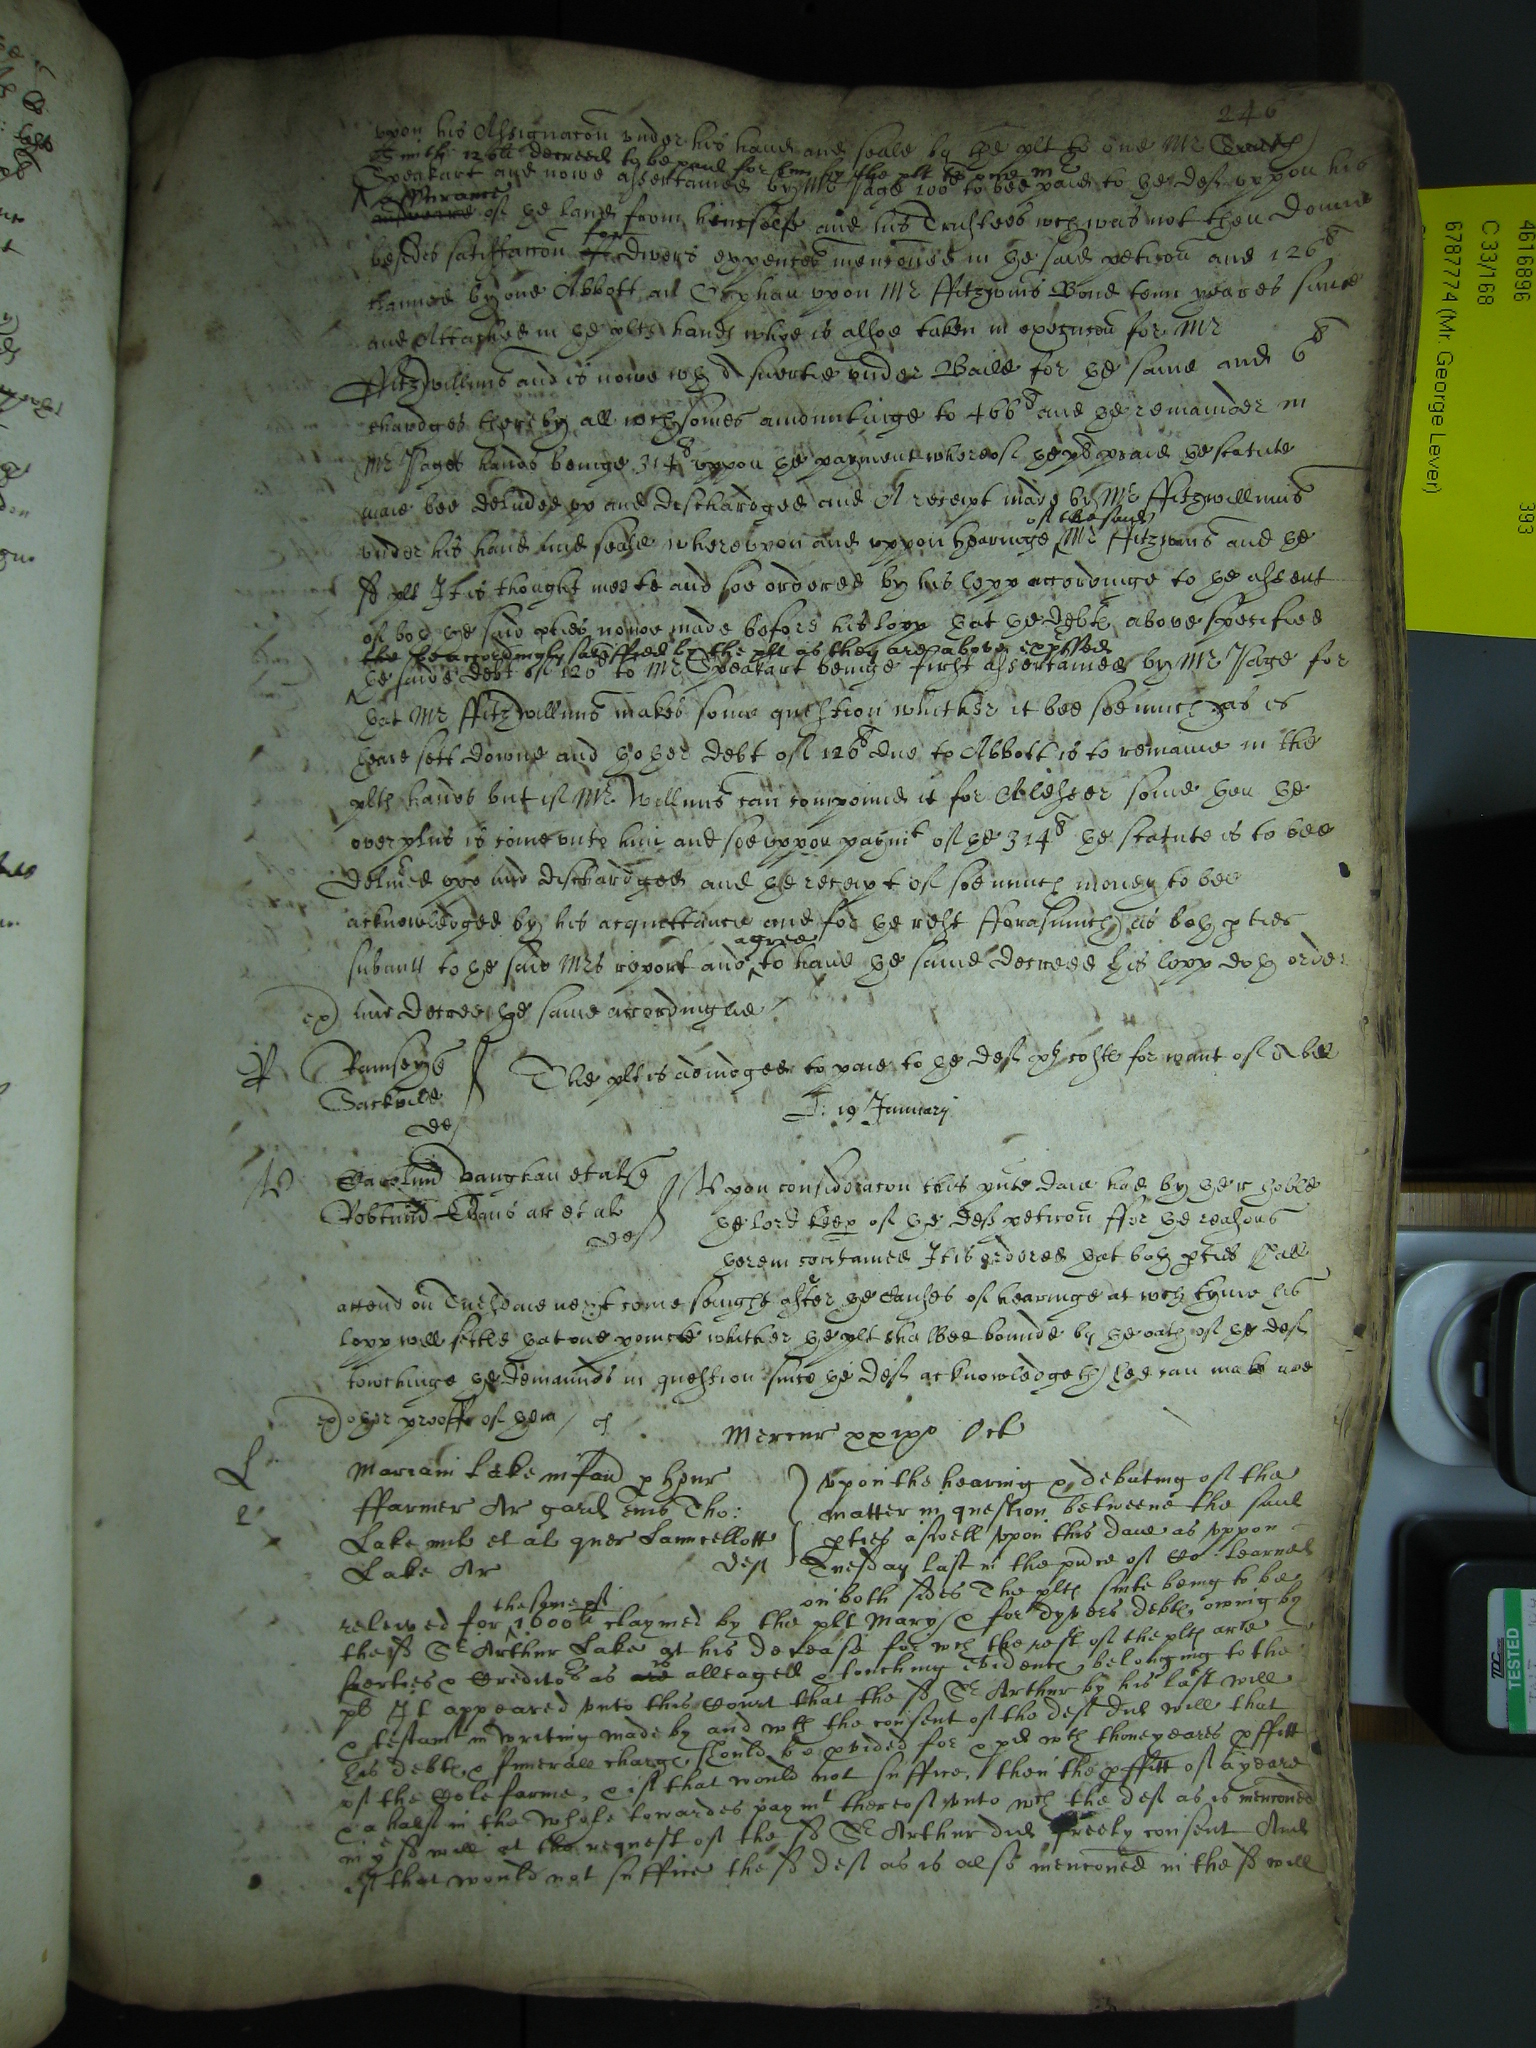 246
upon his Assignacon under his hand and seale by the plt to one Mr Smith
Smith 126li decreed to be paid for him by the plt to one Mr
Speakart and nowe assertained by Mr Page 100li to bee paid to the deft uppon his
assurance
of the land from himselfe and his Trustees wch was not then donne
besides satisfaccon for divers expences mencioned in the said peticon and 126li
claimed by one Abbott an Orphan upon Mr ffitzwms Bond tenn yeares since
and Attached in the plts hands whoe is allsoe taken in execucon for Mr
ffitzwillims and is nowe wth suertie under Baile for the same and 6li
chardges therby all wch somes amountinge to 466li and the remainder in
Mr Pages hands beinge 314li uppon the payment whereof the statute
maie bee delivered up and dischardged and A receipt made by Mr ffitzwillims
of the said
under his hand and seale whereupon and uppon hearinge Mr ffitzwms and the
sd plt It is thought meete and soe ordered by his lopp accordinge to the assent
of both the said pties nowe made before his lopp that the debts above specified
be accordingly satisfied by the plt as they are above expssed
the said debt of 120li to Mr Speakart beinge first assertained by Mr Page for
that Mr ffitzwillims makes some question whether it bee soe much as is
heare sett downe and thother debt of 126li due to Abbott is to remaine in the
plts hands but if Mr Willims can compound it for A lesser some then the
overplus is come unto him and soe uppon paymt of the 314li the statute is to bee
delivred upp and dischardged and the receipt of soe much money to bee
acknowledged by his acquittance and for the rest fforasmuch as both pties
agree
submitt to the said Mrs report and to have the same decreed his lopp doth order
ex) and decree the same accordinglie
R Ramseye
Sackvile
def
The plt is adiudged to paie to the def costs for want of A bill
T: 19 January
Vaughan et als
Evans ar et al
def
Upon consideracon this pnte daie had by the r hoble
the lord keep of the defts peticon ffor the reasons
therein conteined It is ordered that both pties shall
attend on Tuesdaie next come senight after the causes of hearinge at wch tyme his
lopp will settle that one pointe whither the plt shalbee bounde by the oath of the deft
towchinge the demaunds in question since the deft acknowledgeth hee can make noe
ex) other prooffe of them
Mercur xxixo Oct
L
Mariam Lake infan p Henr
ffarmer Ar gard eius Tho:
Lake mil et al quer Launcellott
Lake Ar def
Upon the hearing & debating of the
matter in question betweene the said
pties aswell upon this daie as uppon
Tuesday last in the pnce of Co: learned
on both sides The plts suite being to be
the some of
releived for 1000li claymed by the plt Mary & for dyvers debts owing by
the sd Sr Arthur Lake at his decease for wch the rest of the plts are
suerties & Creditors as is alleaged & touching evidence belonging to the
pls It appeared unto this Court that the sd Sr Arthur by his last will
& testamt in writing made by and wth the consent of the deft did will that
his debts & funerall charges should be pvided for & pd wth thone yeares pffitt
of the Cole farme, & if that would not suffice, then the pffitt of a yeare
& a half in the whole towardes paymt thereof unto wch the deft as is menconed
in ye sd will at the request of the sd Sr Arthur did freely consent And
if that would not suffice the sd deft as is also menconed in the sd will
4616896
C 33/168
6787774 (Mr. George Lever)
393
TESTED